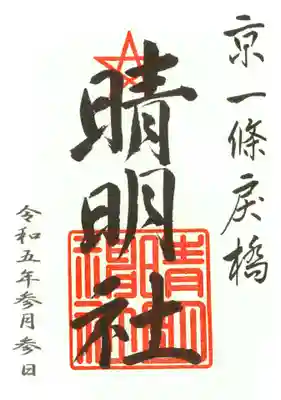 京一條戻橋
晴明社
晴明神社
令和五年参月参日